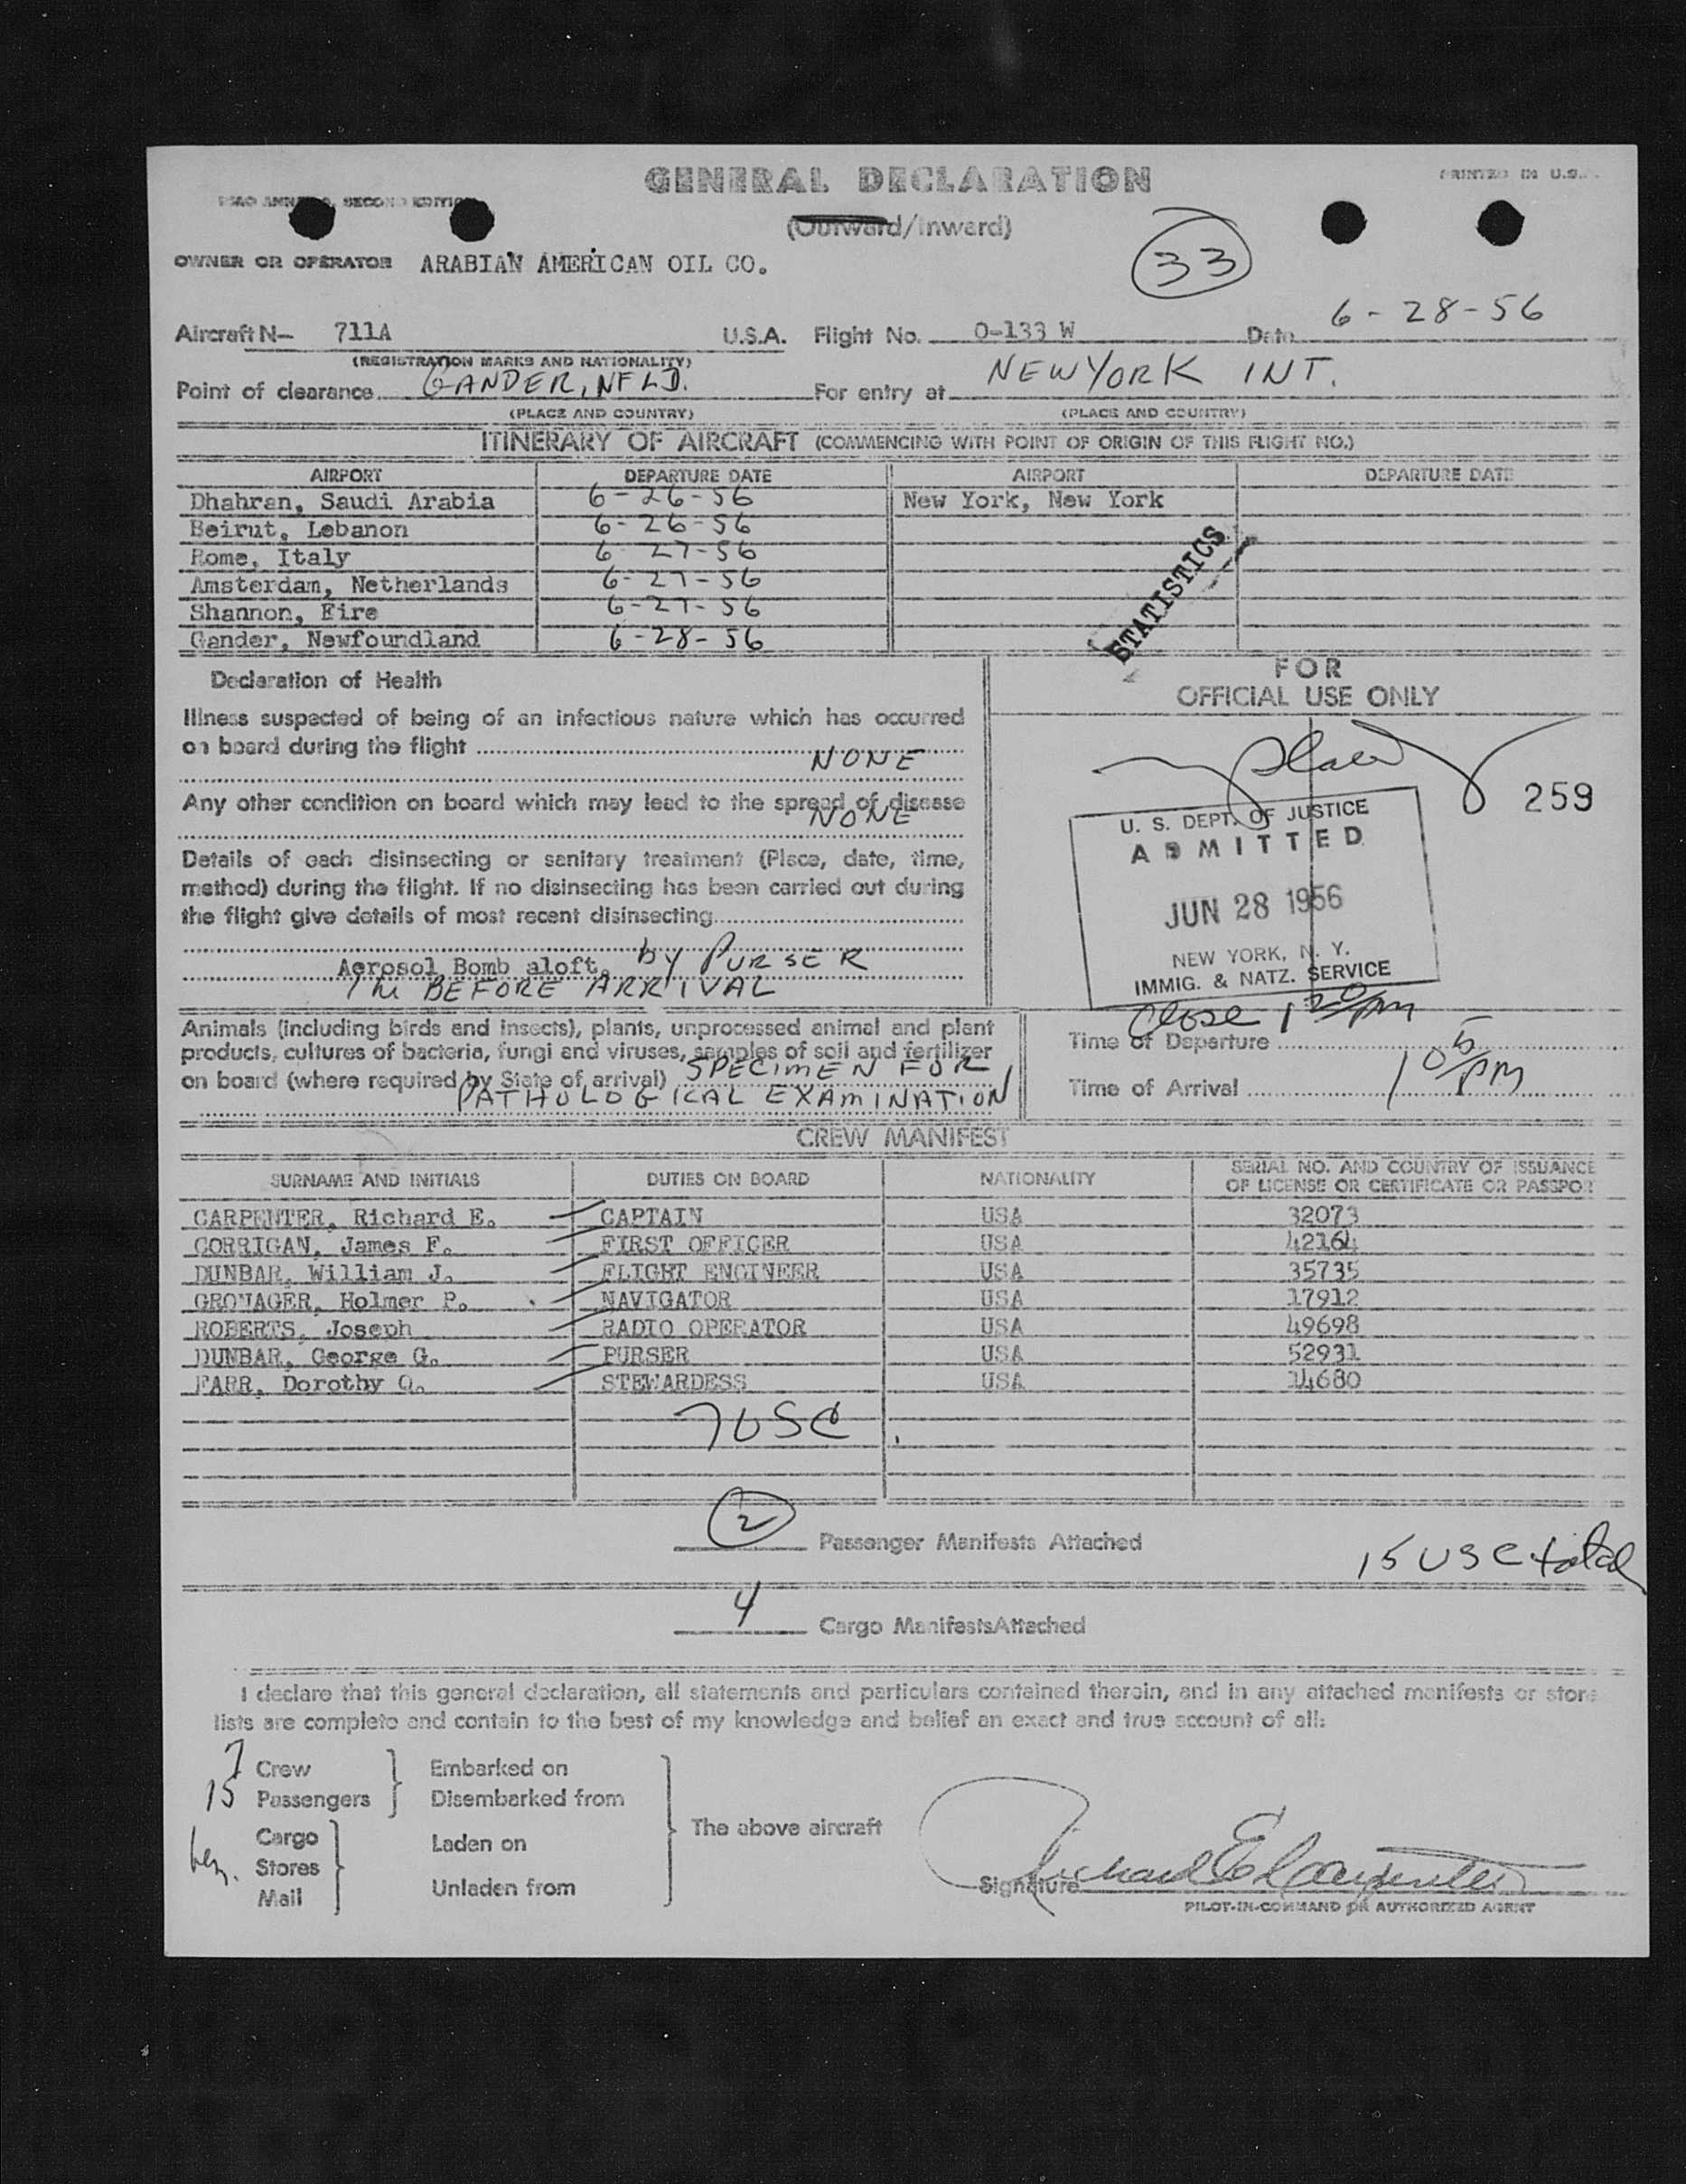 GENERAL DECLARATION
PRINTED IN U.S.A.
ICAO ANNEX 9, SECOND EDITION
(Outward/Inward)
33
OWNER OR OPERATOR ARABIAN AMERICAN OIL CO.
Aircraft N- 711A U.S.A. Flight No. O-133 W Date 6-28-56
(REGISTRATION MARKS AND NATIONALITY)
Point of clearance GANDER, NFLD. For entry at NEW YORK INT.
(PLACE AND COUNTRY) (PLACE AND COUNTRY)
ITINERARY OF AIRCRAFT (COMMENCING WITH POINT OF ORIGIN OF THIS FLIGHT NO.)
AIRPORT DEPARTURE DATE AIRPORT DEPARTURE DATE
Dhahran, Saudi Arabia 6-26-56 New York, New York
Beirut, Lebanon 6-26-56
Rome, Italy 6-27-56
Amsterdam, Netherlands 6-27-56
Shannon, Eire 6-27-56
Gander, Newfoundland 6-28-56
STATISTICS
Declaration of Health
FOR
OFFICIAL USE ONLY
Illness suspected of being of an infectious nature which has occurred
on board during the flight NONE
Any other condition on board which may lead to the spread of disease
NONE
259
Details of each disinsecting or sanitary treatment (Place, date, time,
method) during the flight. If no disinsecting has been carried out during
the flight give details of most recent disinsecting
Aerosol Bomb aloft, by PURSER
BEFORE ARRIVAL
U. S. DEPT. OF JUSTICE
ADMITTED
JUN 28 1956
NEW YORK, N. Y.
IMMIG. & NATZ. SERVICE
Animals (including birds and insects), plants, unprocessed animal and plant
products, cultures of bacteria, fungi and viruses, samples of soil and fertilizer
on board (where required by State of arrival) SPECIMEN FOR
PATHOLOGICAL EXAMINATION
Close 1 20/pm
Time of Departure
Time of Arrival 1 05/pm
CREW MANIFEST
SURNAME AND INITIALS DUTIES ON BOARD NATIONALITY SERIAL NO. AND COUNTRY OF ISSUANCE
OF LICENSE OR CERTIFICATE OR PASSPOR
CARPENTER, Richard E. CAPTAIN USA 32073
CORRIGAN, James F. FIRST OFFICER USA 42164
DUNBAR, William J. FLIGHT ENGINEER USA 35735
GRONAGER, Holmer P. NAVIGATOR USA 17912
ROBERTS, Joseph RADIO OPERATOR USA 49698
DUNBAR, George G. PURSER USA 52931
FARR, Dorothy O. STEWARDESS USA 14680
7 USC
2 Passenger Manifests Attached
15 USC total
4 Cargo Manifests Attached
I declare that this general declaration, all statements and particulars contained therein, and in any attached manifests or store
lists are complete and contain to the best of my knowledge and belief an exact and true account of all:
7 Crew Embarked on
15 Passengers Disembarked from
The above aircraft
Cargo Laden on
Stores
Mail Unladen from
Signature Richard E Carpenter
PILOT-IN-COMMAND OR AUTHORIZED AGENT